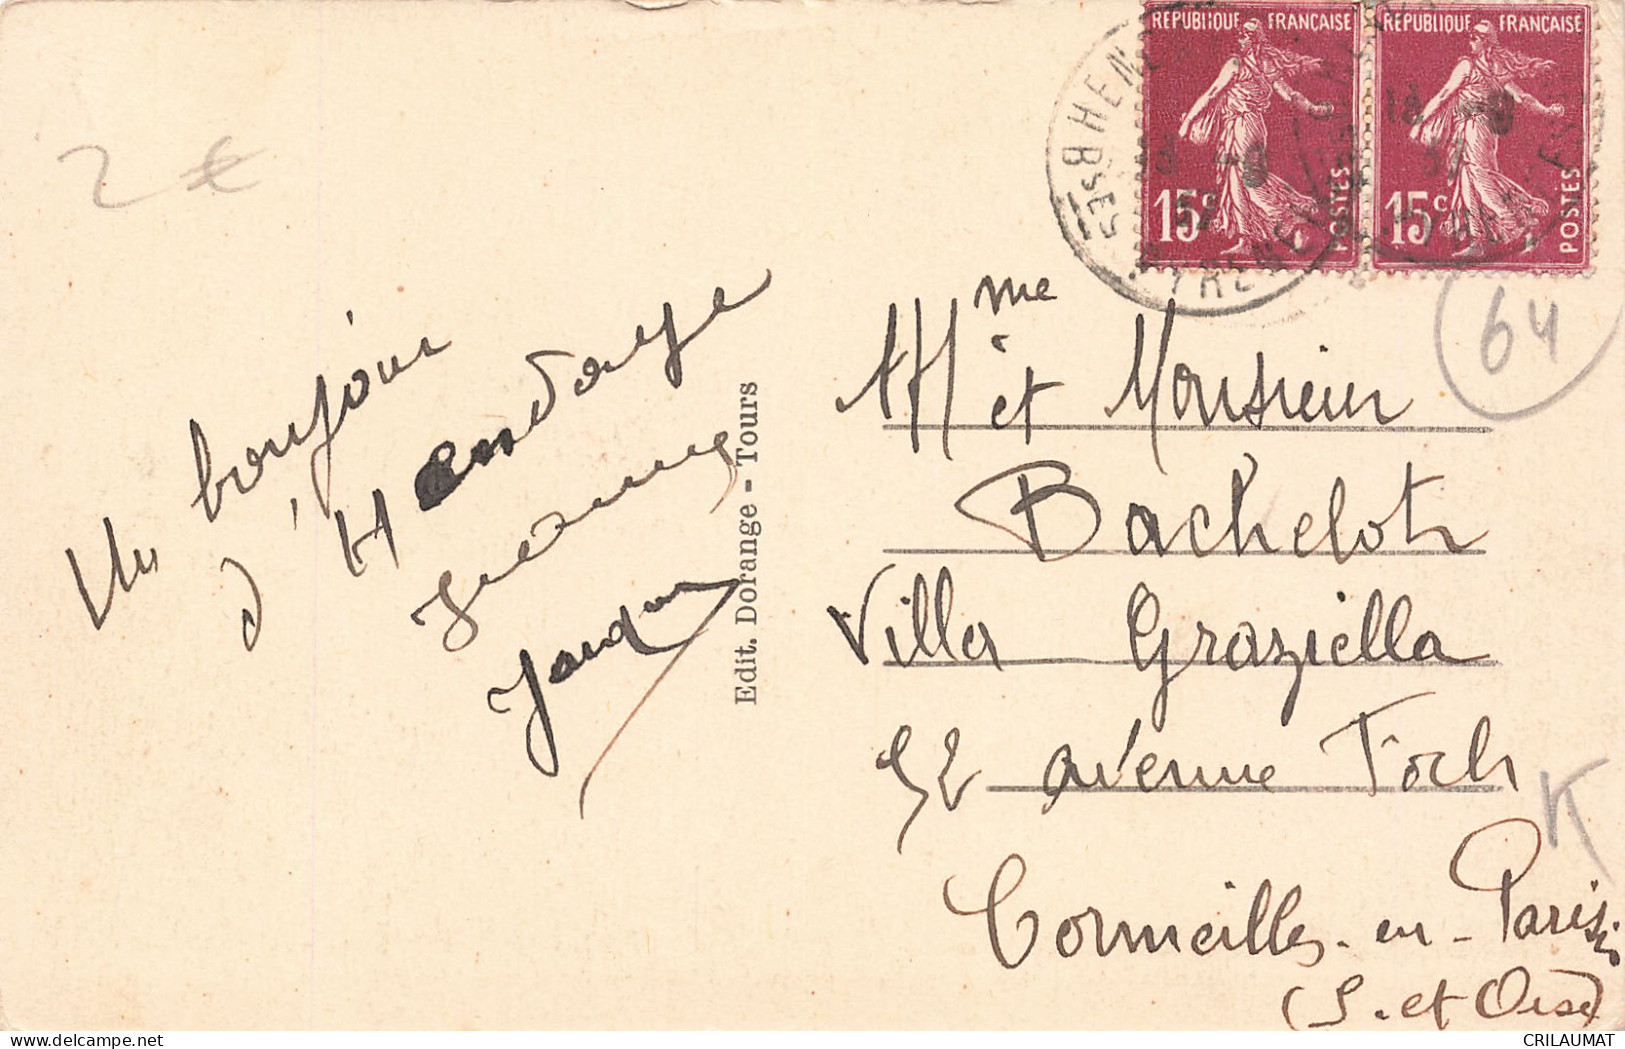 2 €
Un bonjour
d'Hendaye
Jeanne
Jacques
Edit. Dorange - Tours
REPUBLIQUE FRANÇAISE
15c
POSTES
REPUBLIQUE FRANÇAISE
15c
POSTES
64
Mme et Monsieur
Bachelot
Villa Graziella
52 avenue Foch
K
Cormeilles-en-Parisis
(S. et Oise)
CRILAUMAT